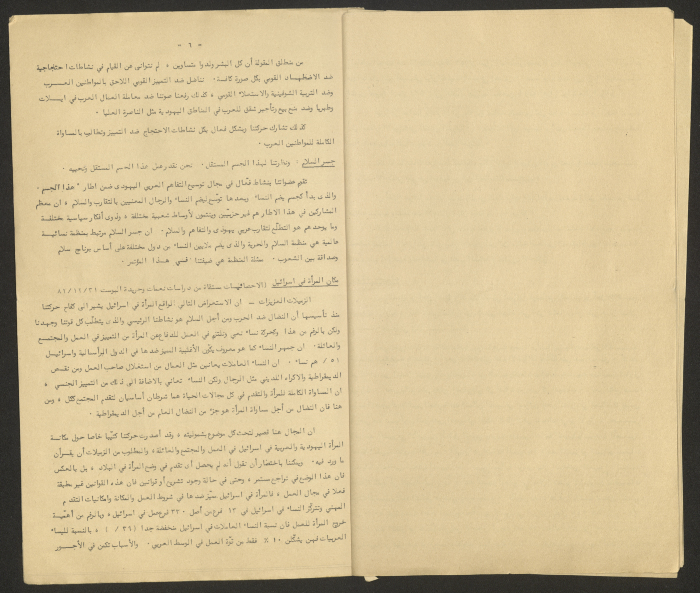 " ٦ "
من منطلق المقولة أن كل البشر ولدوا متساوين ، لم نتوانى عن القيام في نشاطات احتجاجية
ضد الاضطهاد القومي بكل صورة كانت. نناضل ضد التمييز القومي اللاحق بالمواطنين العرب
وضد التربية الشوفينية والاستعلاء القومي ، كذلك رفعنا صوتنا ضد معاملة العمال العرب في ايلات
وطبريا وضد منع بيع وتأجير شقق للعرب في المناطق اليهودية مثل الناصرة العليا .
كذلك تشارك حركتنا وبشكل فعال بكل نشاطات الاحتجاج ضد التمييز وتطالب بالمساواة
الكاملة للمواطنين العرب .
جسر السلام . ونظرتنا لهذا الجسم المستقل . نحن نقدر عمل هذا الجسم المستقل ونحييه .
تقوم عضواتنا بنشاط فعّال في مجال توسيع التفاهم العربي اليهودي ضمن اطار "هذا الجسم .
والذي بدأ كجسم يضم النساء وبعدها توسّع ليضم النساء والرجال المعنيين بالتقارب والسلام ، ان معظم
المشاركين في هذا الاطار هم غير حزبيّين وينتمون لأوساط شعبية مختلفة ، وذوي أفكار سياسية مختلفة
وما يوحدهم هو التطلّع لتقارب عربي يهودي والتفاهم والسلام . ان جسر السلام مرتبط بمنظمة نسائية
عالمية هي منظمة السلام والحرية والذي يضم ملايين النساء من دول مختلفة على أساس برنامج سلام
وصداقة بين الشعوب . ممثلة المنظمة هي ضيفتنا في هذا المؤتمر .
مكان المرأة في اسرائيل (الاحصائيات مستقاة من دراسات نعمات وجريدة البوست ٨٦/١٢/٣١
الزميلات العزيزات – ان الاستعراض التالي لواقع المرأة في اسرائيل يشير الى كفاح حركتنا
منذ تأسيسها أن النضال ضد الحرب ومن أجل السلام هو نشاطنا الرئيسي والذي يتطلّب كل قوتنا وجهدنا
ولكن بالرغم من هذا وكحركة نساء نعي ونلتزم في العمل للدفاع عن المرأة من التمييز في العمل والمجتمع
والعائلة . ان جمهور النساء كما هو معروف يكوّن الأغلبية المميز ضدها في الدول الرأسمالية واسرائيل
٥١ ٪ هم نساء . ان النساء العاملات يعانين مثل العمال من استغلال صاحب العمل ومن نقص
الديمقراطية والاكراه الديني مثل الرجال ولكن النساء تعاني بالاضافة الى ذلك من التمييز الجنسي ،
ان المساواة الكاملة للمرأة والتقدم في كل مجالات الحياة هما شرطان أساسيان لتقدم المجتمع ككل ، ومن
هنا فان النضال من أجل مساواة المرأة هو جزء من النضال العام من أجل الديمقراطية .
ان المجال هنا قصير لنبحث كل موضوع بشموليته ، وقد أصدرت حركتنا كتيّبا خاصا حول مكانة
المرأة اليهودية والعربية في اسرائيل في العمل والمجتمع والعائلة ، والمطلوب من الزميلات أن يقرأن
ما ورد فيه . ويمكننا باختصار أن نقول أنه لم يحصل أي تقدم في وضع المرأة في البلاد ، بل بالعكس
فان هذا الوضع في تراجع مستمر ، وحتى في حالة وجود تشريع أو قوانين فان هذه القوانين غير مطبقة
فعلا في مجال العمل ، فالمرأة في اسرائيل مميّز ضدها في شروط العمل والمكانة وامكانيات التقدم
المهني وتتركّز النساء في اسرائيل في ١٣ فرع من أصل ٣٢٠ فرع عمل في اسرائيل ، وبالرغم من أهمية
خروج المرأة للعمل فان نسبة النساء العاملات في اسرائيل منخفضة جدا (٣٦٪) ، بالنسبة للنساء
العربيات فهن يشكّلن ١٠ ٪ فقط من قوّة العمل في الوسط العربي . والأسباب تكمن في الأجور